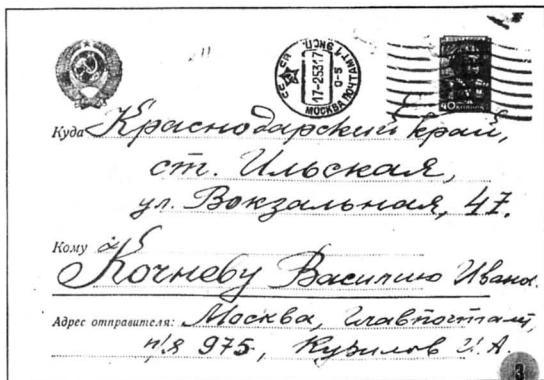 МОСКВА ПОЧТАМТ 1 ЭКСП.
17-25317
0-5
Куда Краснодарский край,
ст. Ильская,
ул. Вокзальная, 47.
Кому
Кочневу Василию Иванов.
Адрес отправителя: Москва, Главпочтамт,
п/я 975, Курилов И. А.
3